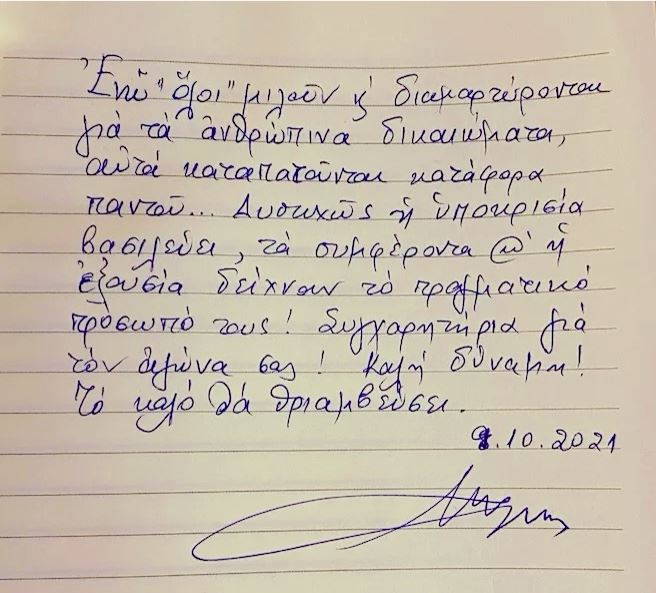 Ἐνῷ "ὅλοι" μιλοῦν κ' διαμαρτύρονται
γιὰ τὰ ἀνθρώπινα δικαιώματα,
αὐτὰ καταπατοῦνται κατάφορα
παντοῦ... Δυστυχῶς ἡ ὑποκρισία
βασιλεύει, τὰ συμφέροντα κ' ἡ
ἐξουσία δείχνουν τὸ πραγματικό
πρόσωπό τους! Συγχαρητήρια γιὰ
τὸν ἀγώνα σας! Καλή δύναμη!
Τὸ καλό θὰ θριαμβεύσει.
.10.2021